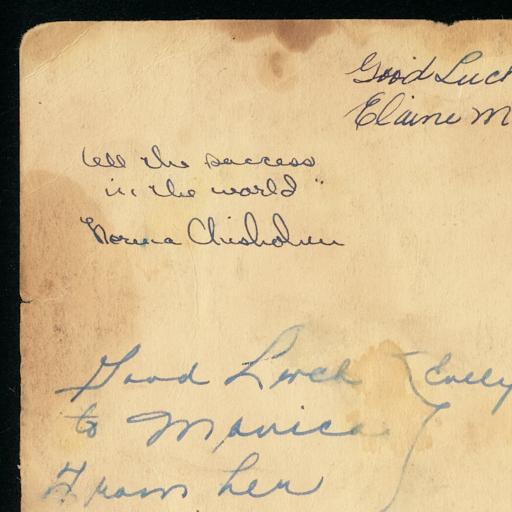 Good Luck
Elaine M
all the success
in the world"
Norma Chisholm
Good Luck
to Monica
From her